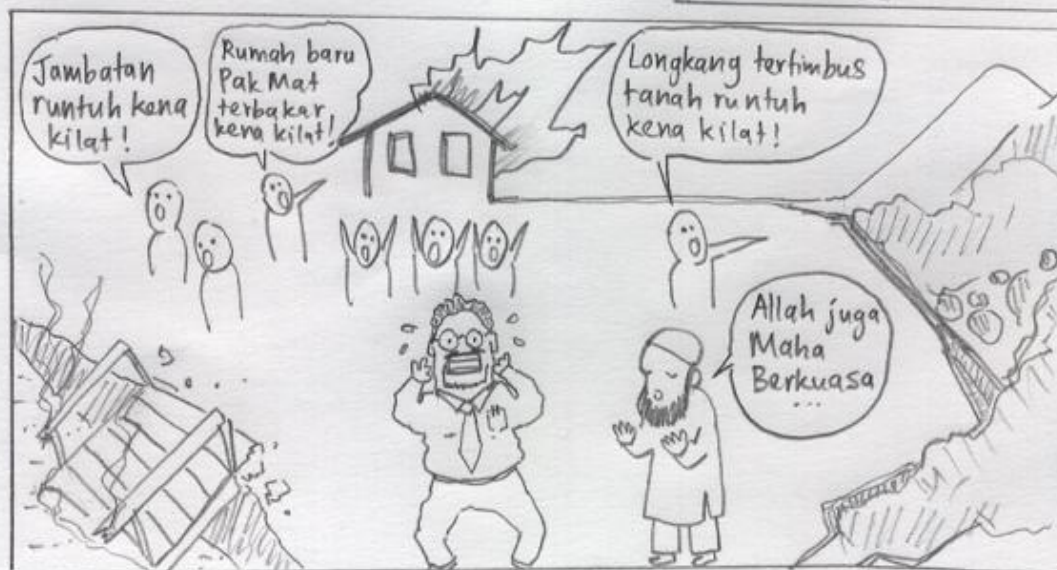 Jambatan
runtuh kena
kilat!
Rumah baru
Pak Mat
terbakar
kena kilat!
Longkang tertimbus
tanah runtuh
kena kilat!
Allah juga
Maha
Berkuasa
...